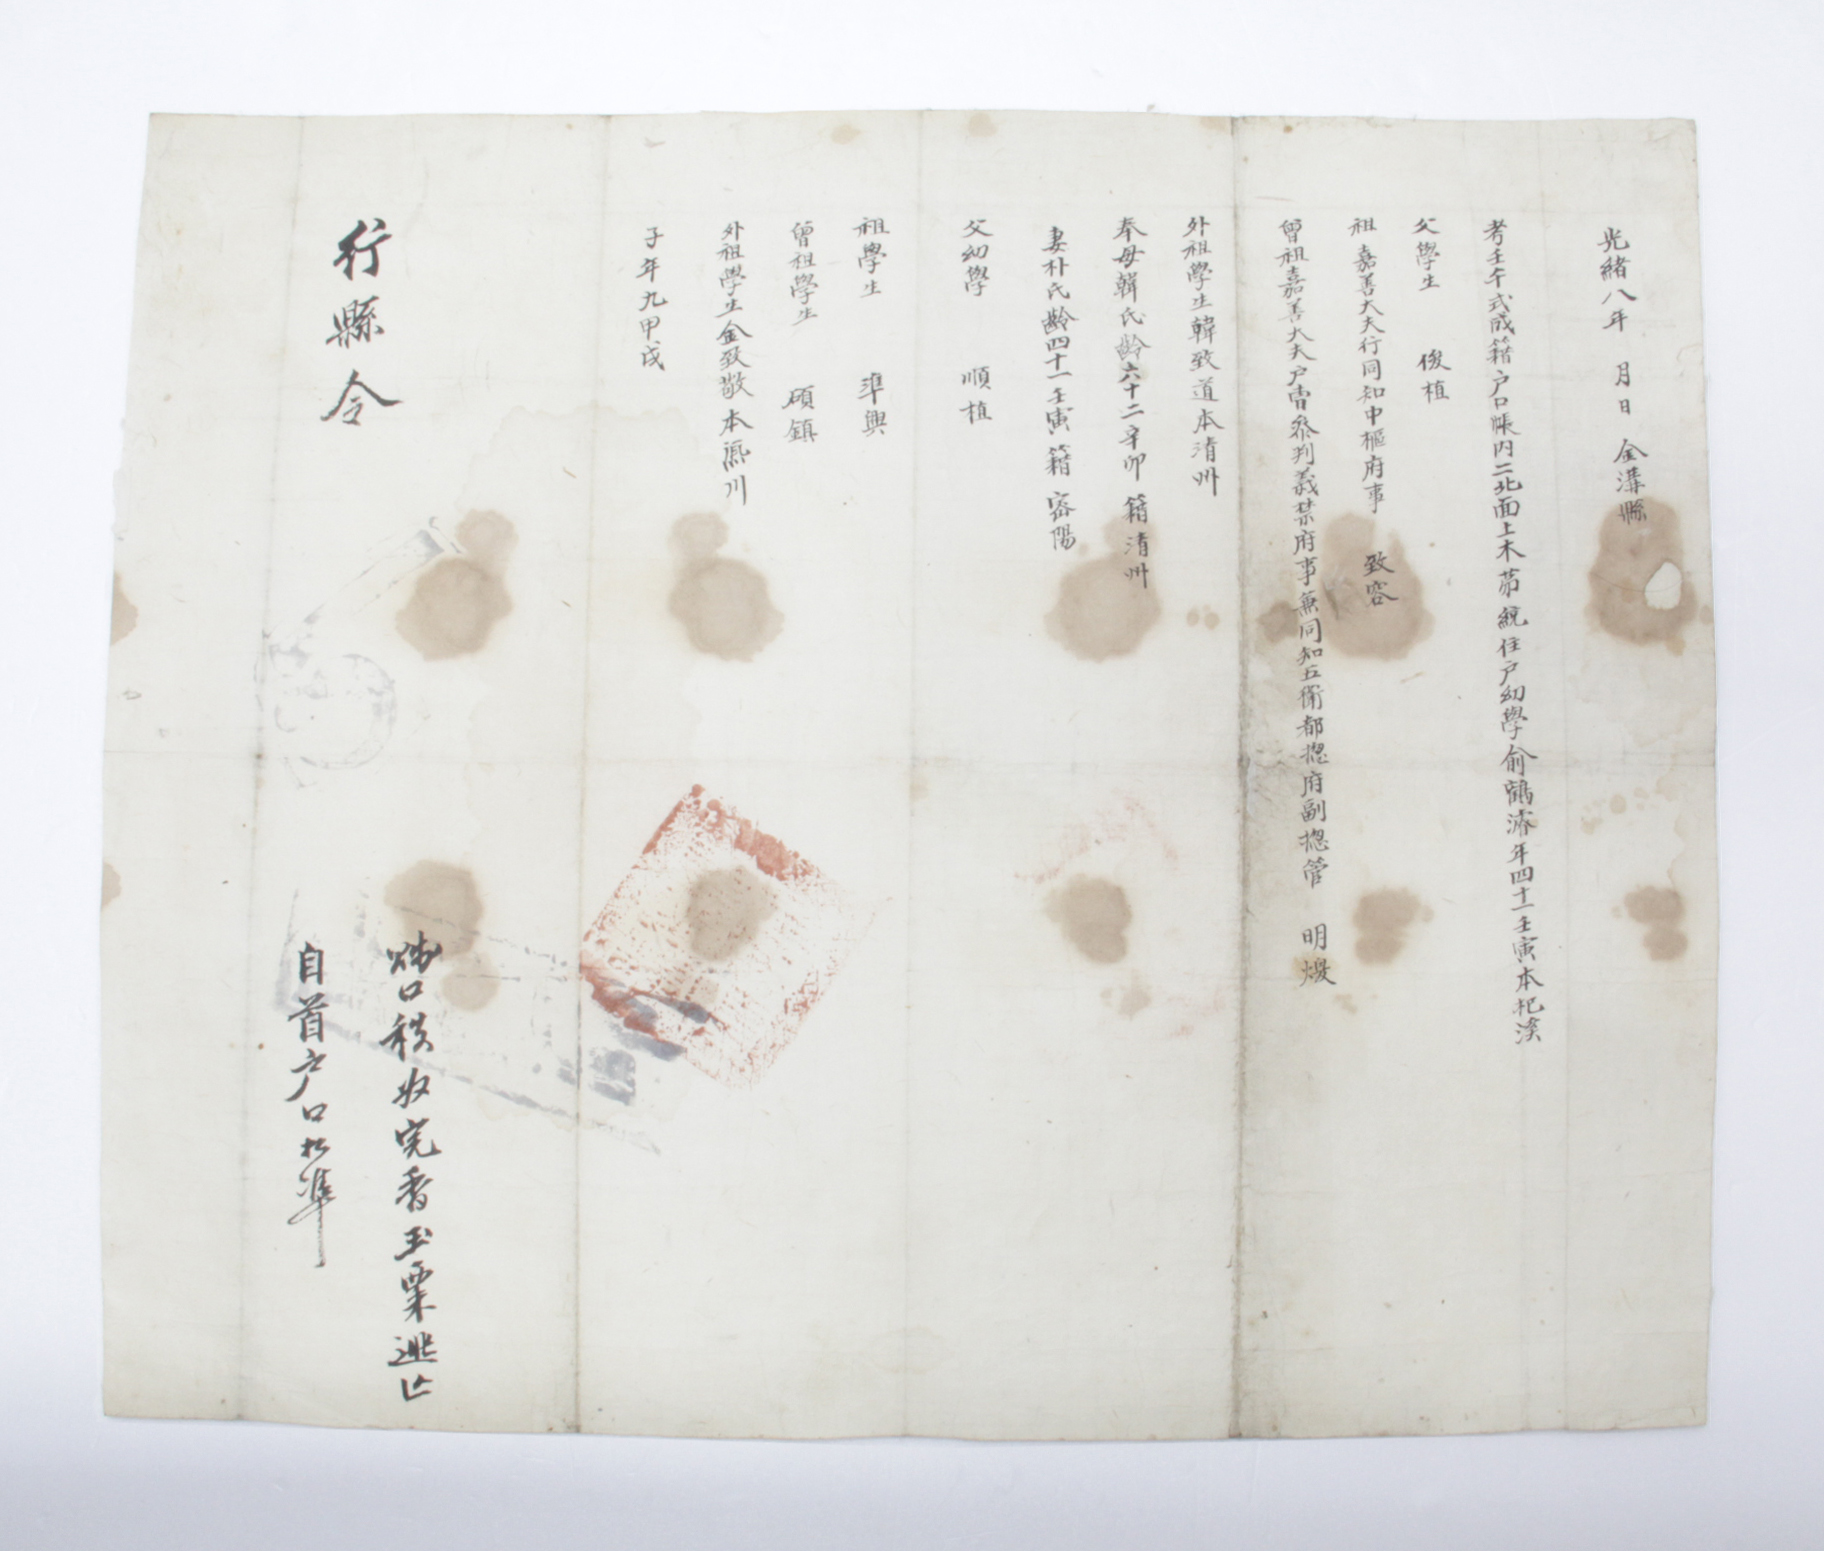 光緖八年 月 日 金溝縣
考壬午式成籍戶口帳內二北面上木 苐 統 住戶幼學俞鶴濬年四十一壬寅本杞溪
父學生 俊植
祖嘉善大夫行同知中樞府事 致容
曾祖嘉善大夫戶曹叅判義禁府事兼同知五衛都揔府副揔管 明煖
外祖學生韓致道本淸州
奉母韓氏齡六十二辛卯籍淸州
妻朴氏齡四十一壬寅籍密陽
父幼學 順植
祖學生 準興
曾祖學生 碩鎮
外祖學生金致敬本 川
子年九甲戌
行縣令
口秩奴完香玉栗逃亡
自首戶口相準